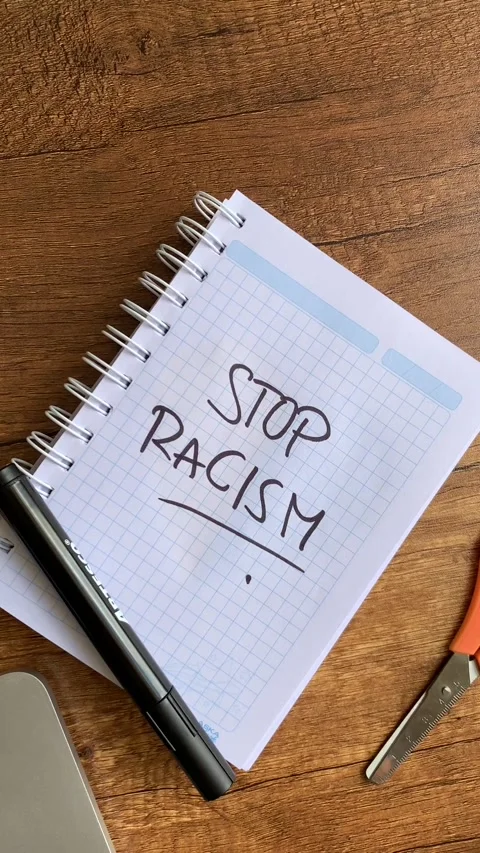 STOP
RACISM